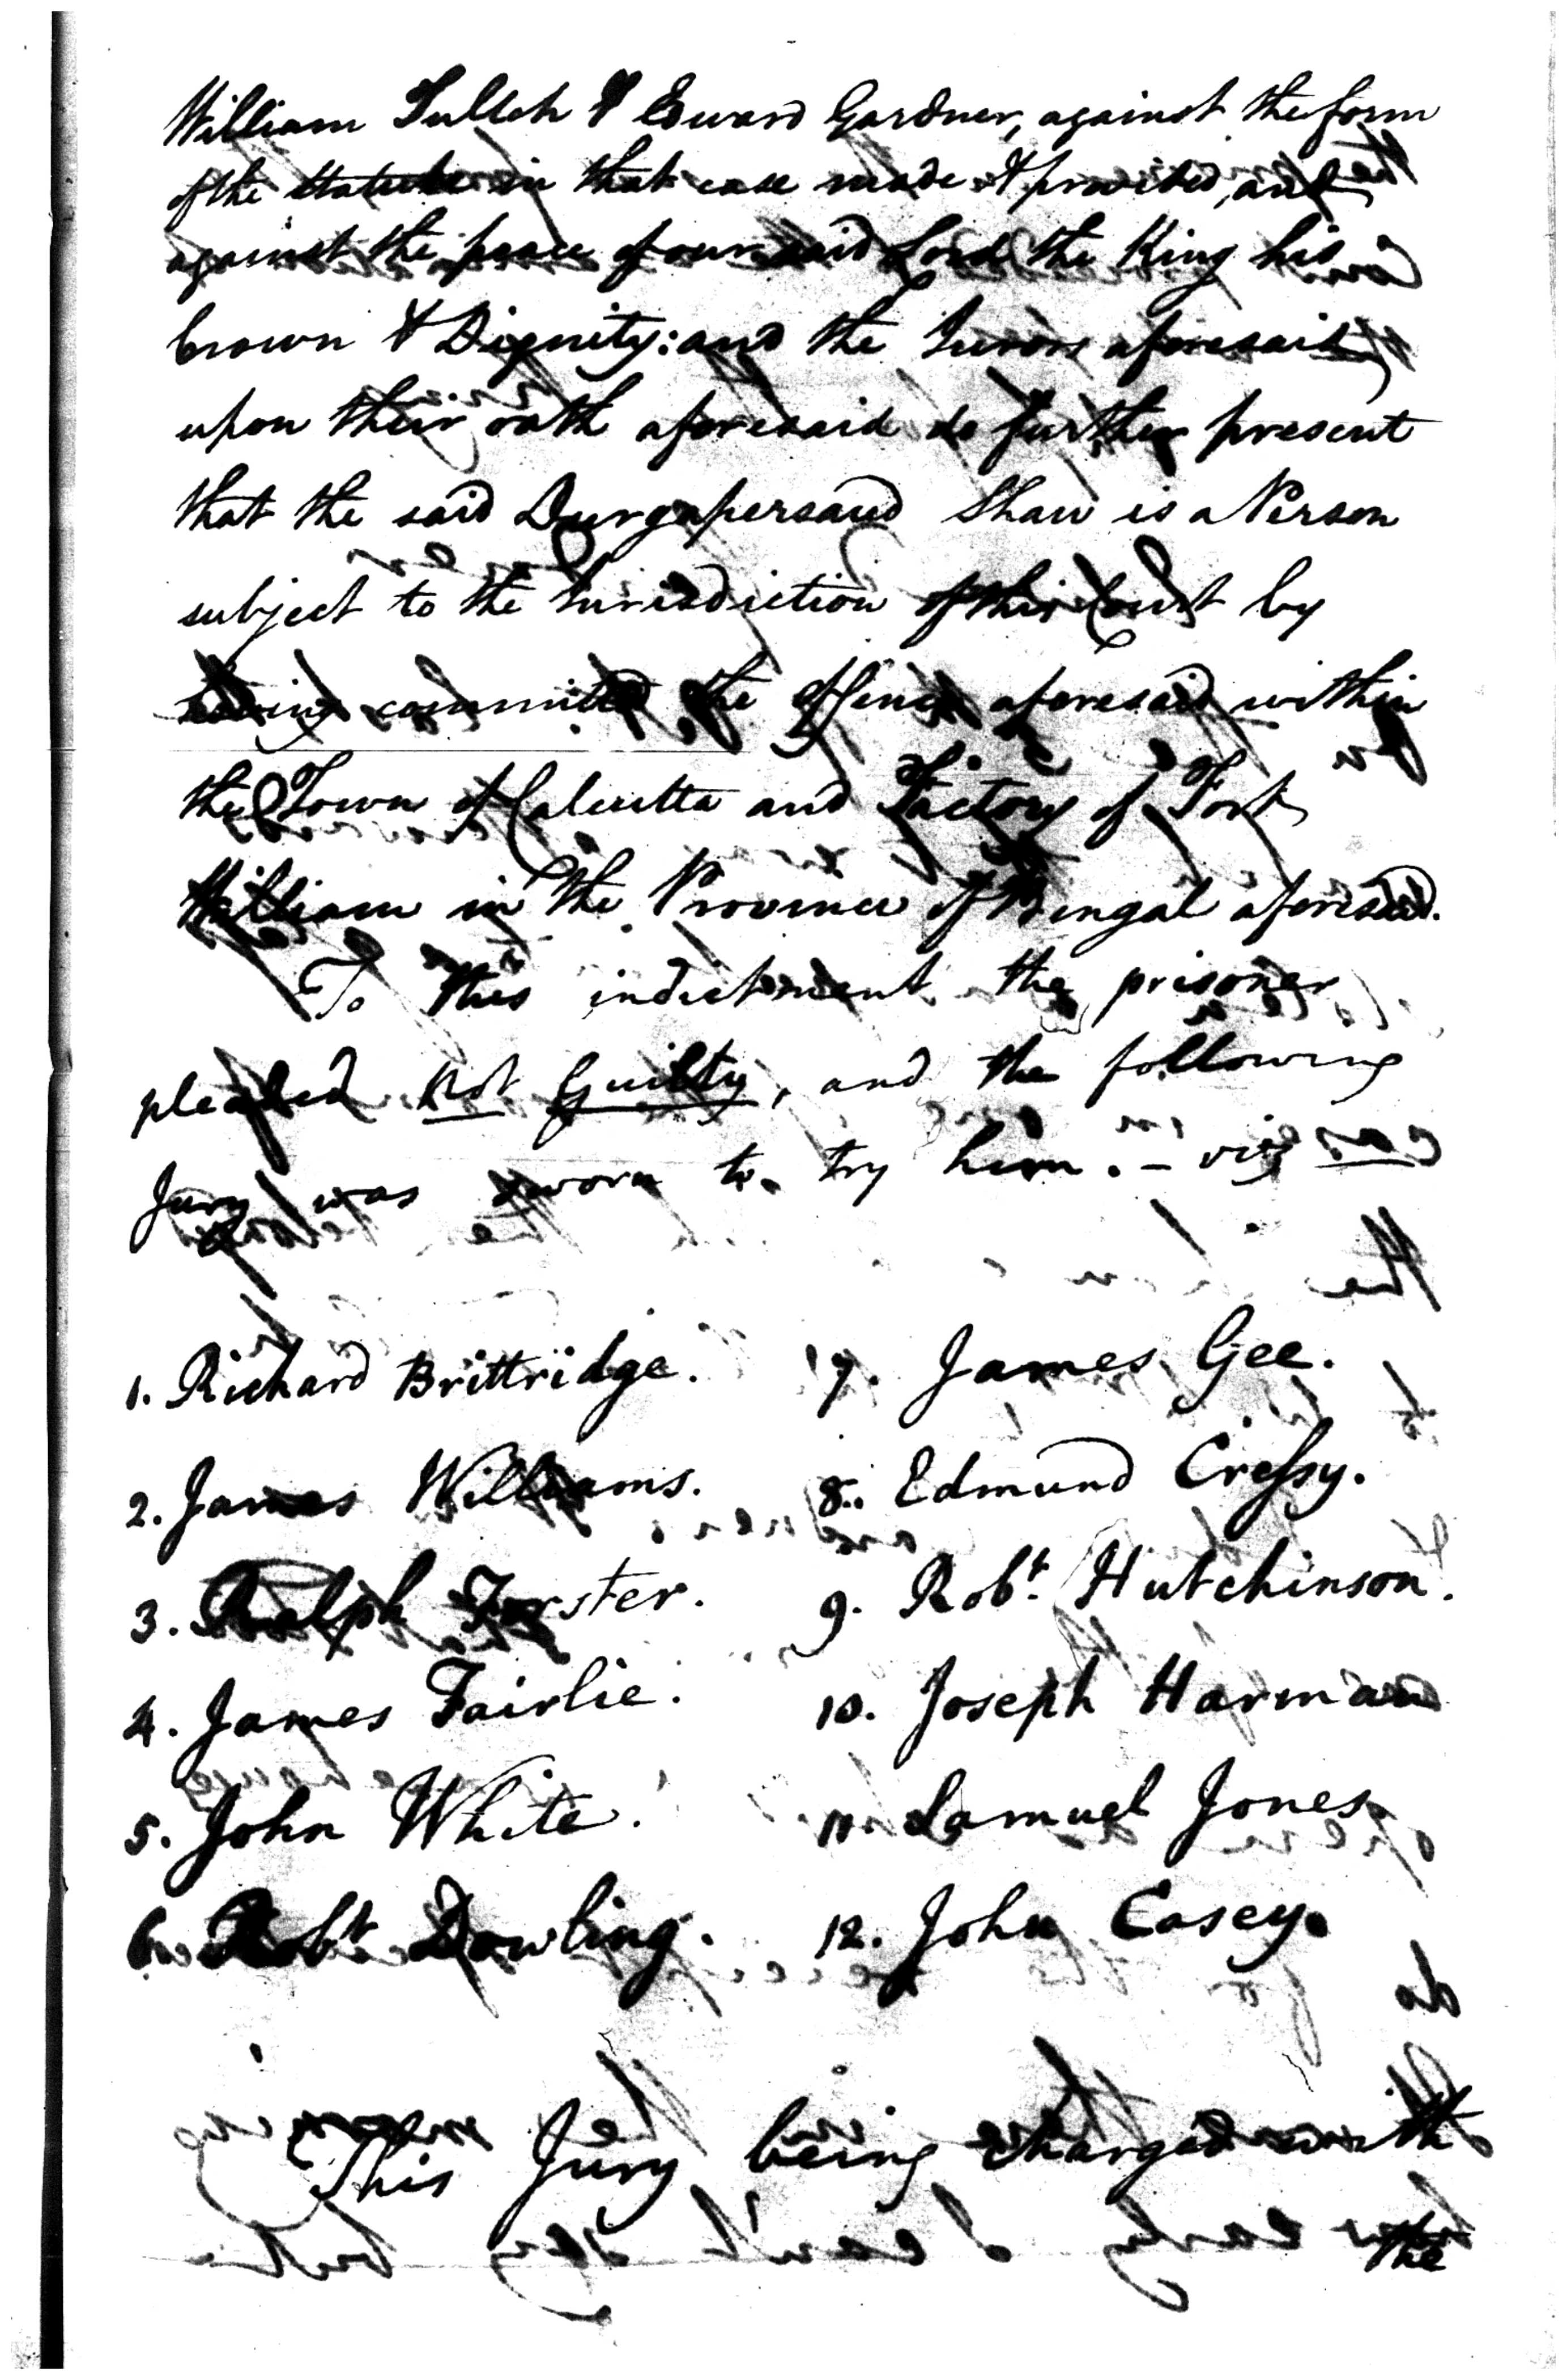 William Tulloh & Edward Gardner, against the form
of the statute in that case made & provided, and
against the peace of our said Lord the King his
Crown & Dignity: and the Jurors aforesaid
upon their oath aforesaid do further present
that the said Durgapersaud Shaw is a Person
subject to the Jurisdiction of this Court by
having committed the offence aforesaid within
the Town of Calcutta and Factory of Fort
William in the Province of Bengal aforesaid.
To this indictment the prisoner
pleaded Not Guilty, and the following
Jury was sworn to try him. – viz
1. Richard Brittridge.
2. James Williams.
3. Ralph Forster.
4. James Fairlie.
5. John White.
6. Robt Dowling.
7. James Gee.
8. Edmund Cressy.
9. Robt. Hutchinson.
10. Joseph Harman
11. Samuel Jones
12. John Casey.
This Jury being charged with
the